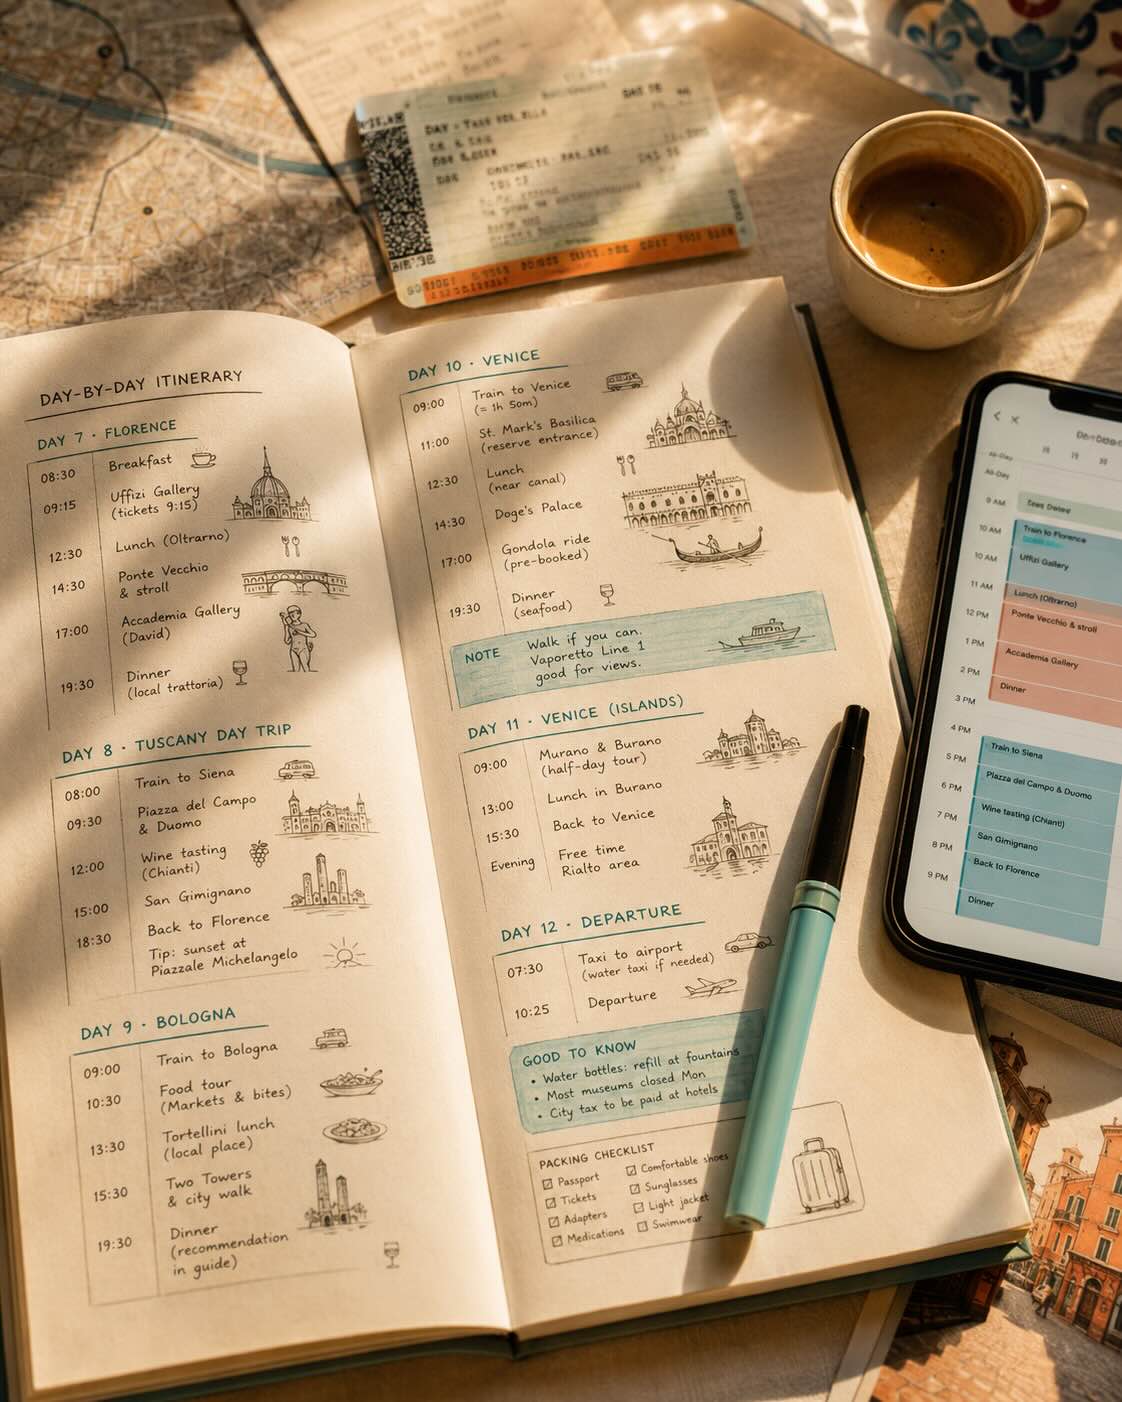 DAY-BY-DAY ITINERARY
DAY 7 · FLORENCE
08:30 Breakfast
09:15 Uffizi Gallery
(tickets 9:15)
12:30 Lunch (Oltrarno)
14:30 Ponte Vecchio
& stroll
17:00 Accademia Gallery
(David)
19:30 Dinner
(local trattoria)
DAY 8 · TUSCANY DAY TRIP
08:00 Train to Siena
09:30 Piazza del Campo
& Duomo
12:00 Wine tasting
(Chianti)
15:00 San Gimignano
18:30 Back to Florence
Tip: sunset at
Piazzale Michelangelo
DAY 9 · BOLOGNA
09:00 Train to Bologna
10:30 Food tour
(Markets & bites)
13:30 Tortellini lunch
(local place)
15:30 Two Towers
& city walk
19:30 Dinner
(recommendation
in guide)
DAY 10 · VENICE
09:00 Train to Venice
(= 1h 50m)
11:00 St. Mark's Basilica
(reserve entrance)
12:30 Lunch
(near canal)
14:30 Doge's Palace
17:00 Gondola ride
(pre-booked)
19:30 Dinner
(seafood)
NOTE Walk if you can.
Vaporetto Line 1
good for views.
DAY 11 · VENICE (ISLANDS)
09:00 Murano & Burano
(half-day tour)
13:00 Lunch in Burano
15:30 Back to Venice
Evening Free time
Rialto area
DAY 12 · DEPARTURE
07:30 Taxi to airport
(water taxi if needed)
10:25 Departure
GOOD TO KNOW
• Water bottles: refill at fountains
• Most museums closed Mon
• City tax to be paid at hotels
PACKING CHECKLIST
☑ Passport
☑ Tickets
☑ Adapters
☑ Medications
☑ Comfortable shoes
☑ Sunglasses
☑ Light jacket
☑ Swimwear
All-Day
All-Day
9 AM
10 AM Train to Florence
10 AM Uffizi Gallery
11 AM Lunch (Oltrarno)
12 PM Ponte Vecchio & stroll
1 PM Accademia Gallery
2 PM Dinner
3 PM
4 PM
5 PM Train to Siena
6 PM Piazza del Campo & Duomo
7 PM Wine tasting (Chianti)
8 PM San Gimignano
9 PM Back to Florence
Dinner